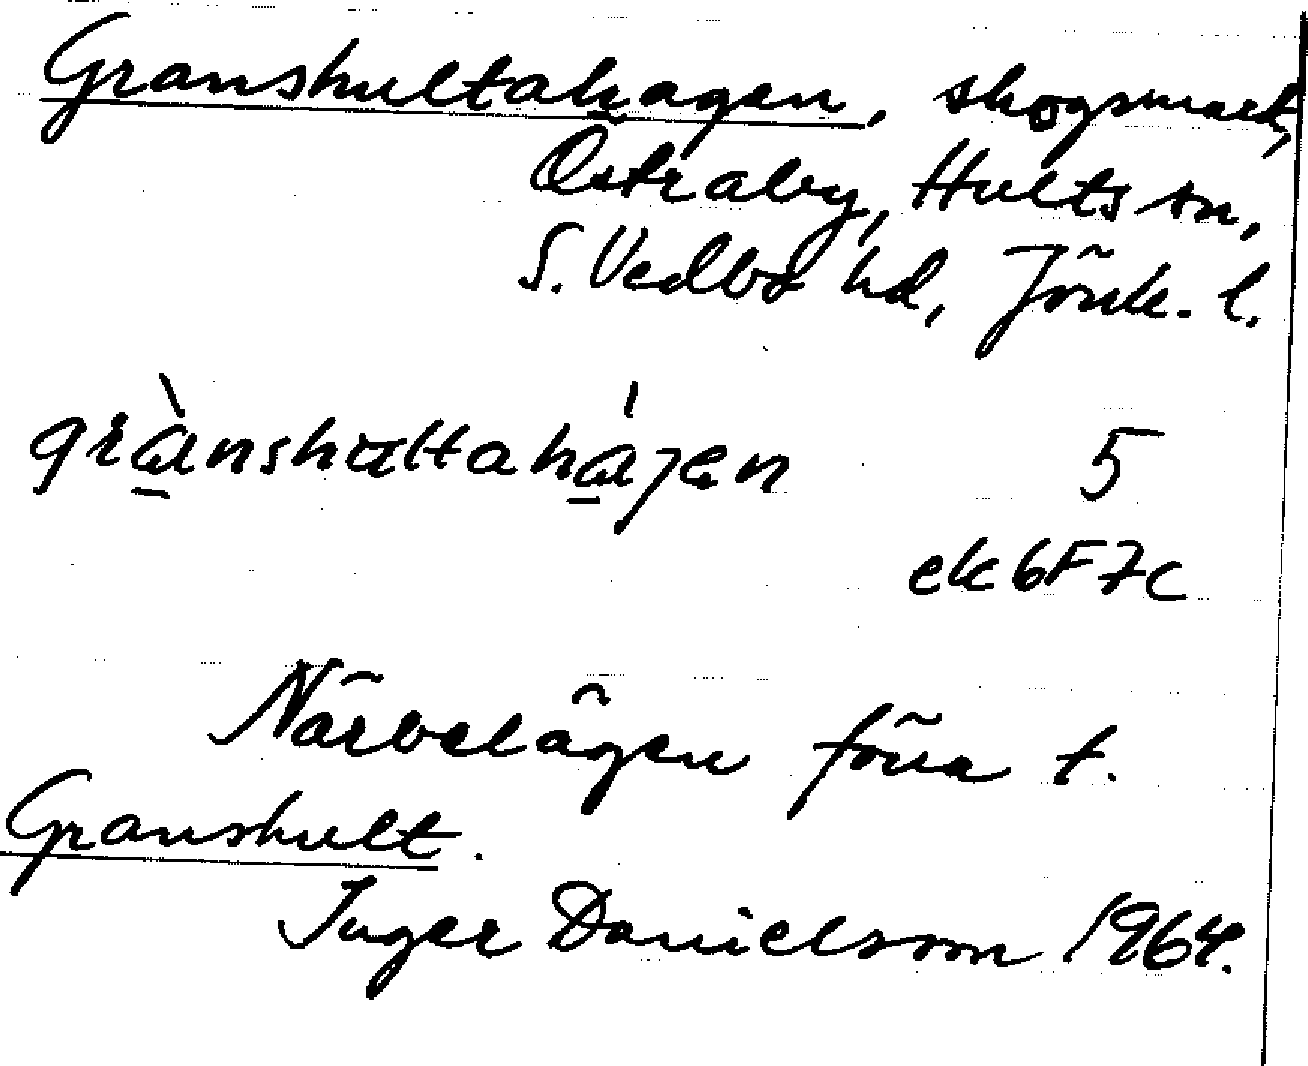 Granshultahagen, skogsmark,
Östraby, Hults sn,
S. Vedbo hd, Jönk. l.
grànshultahájen 5
ek 6F7c
Närbelägen förra t.
Granshult.
Inger Danielsson 1964.